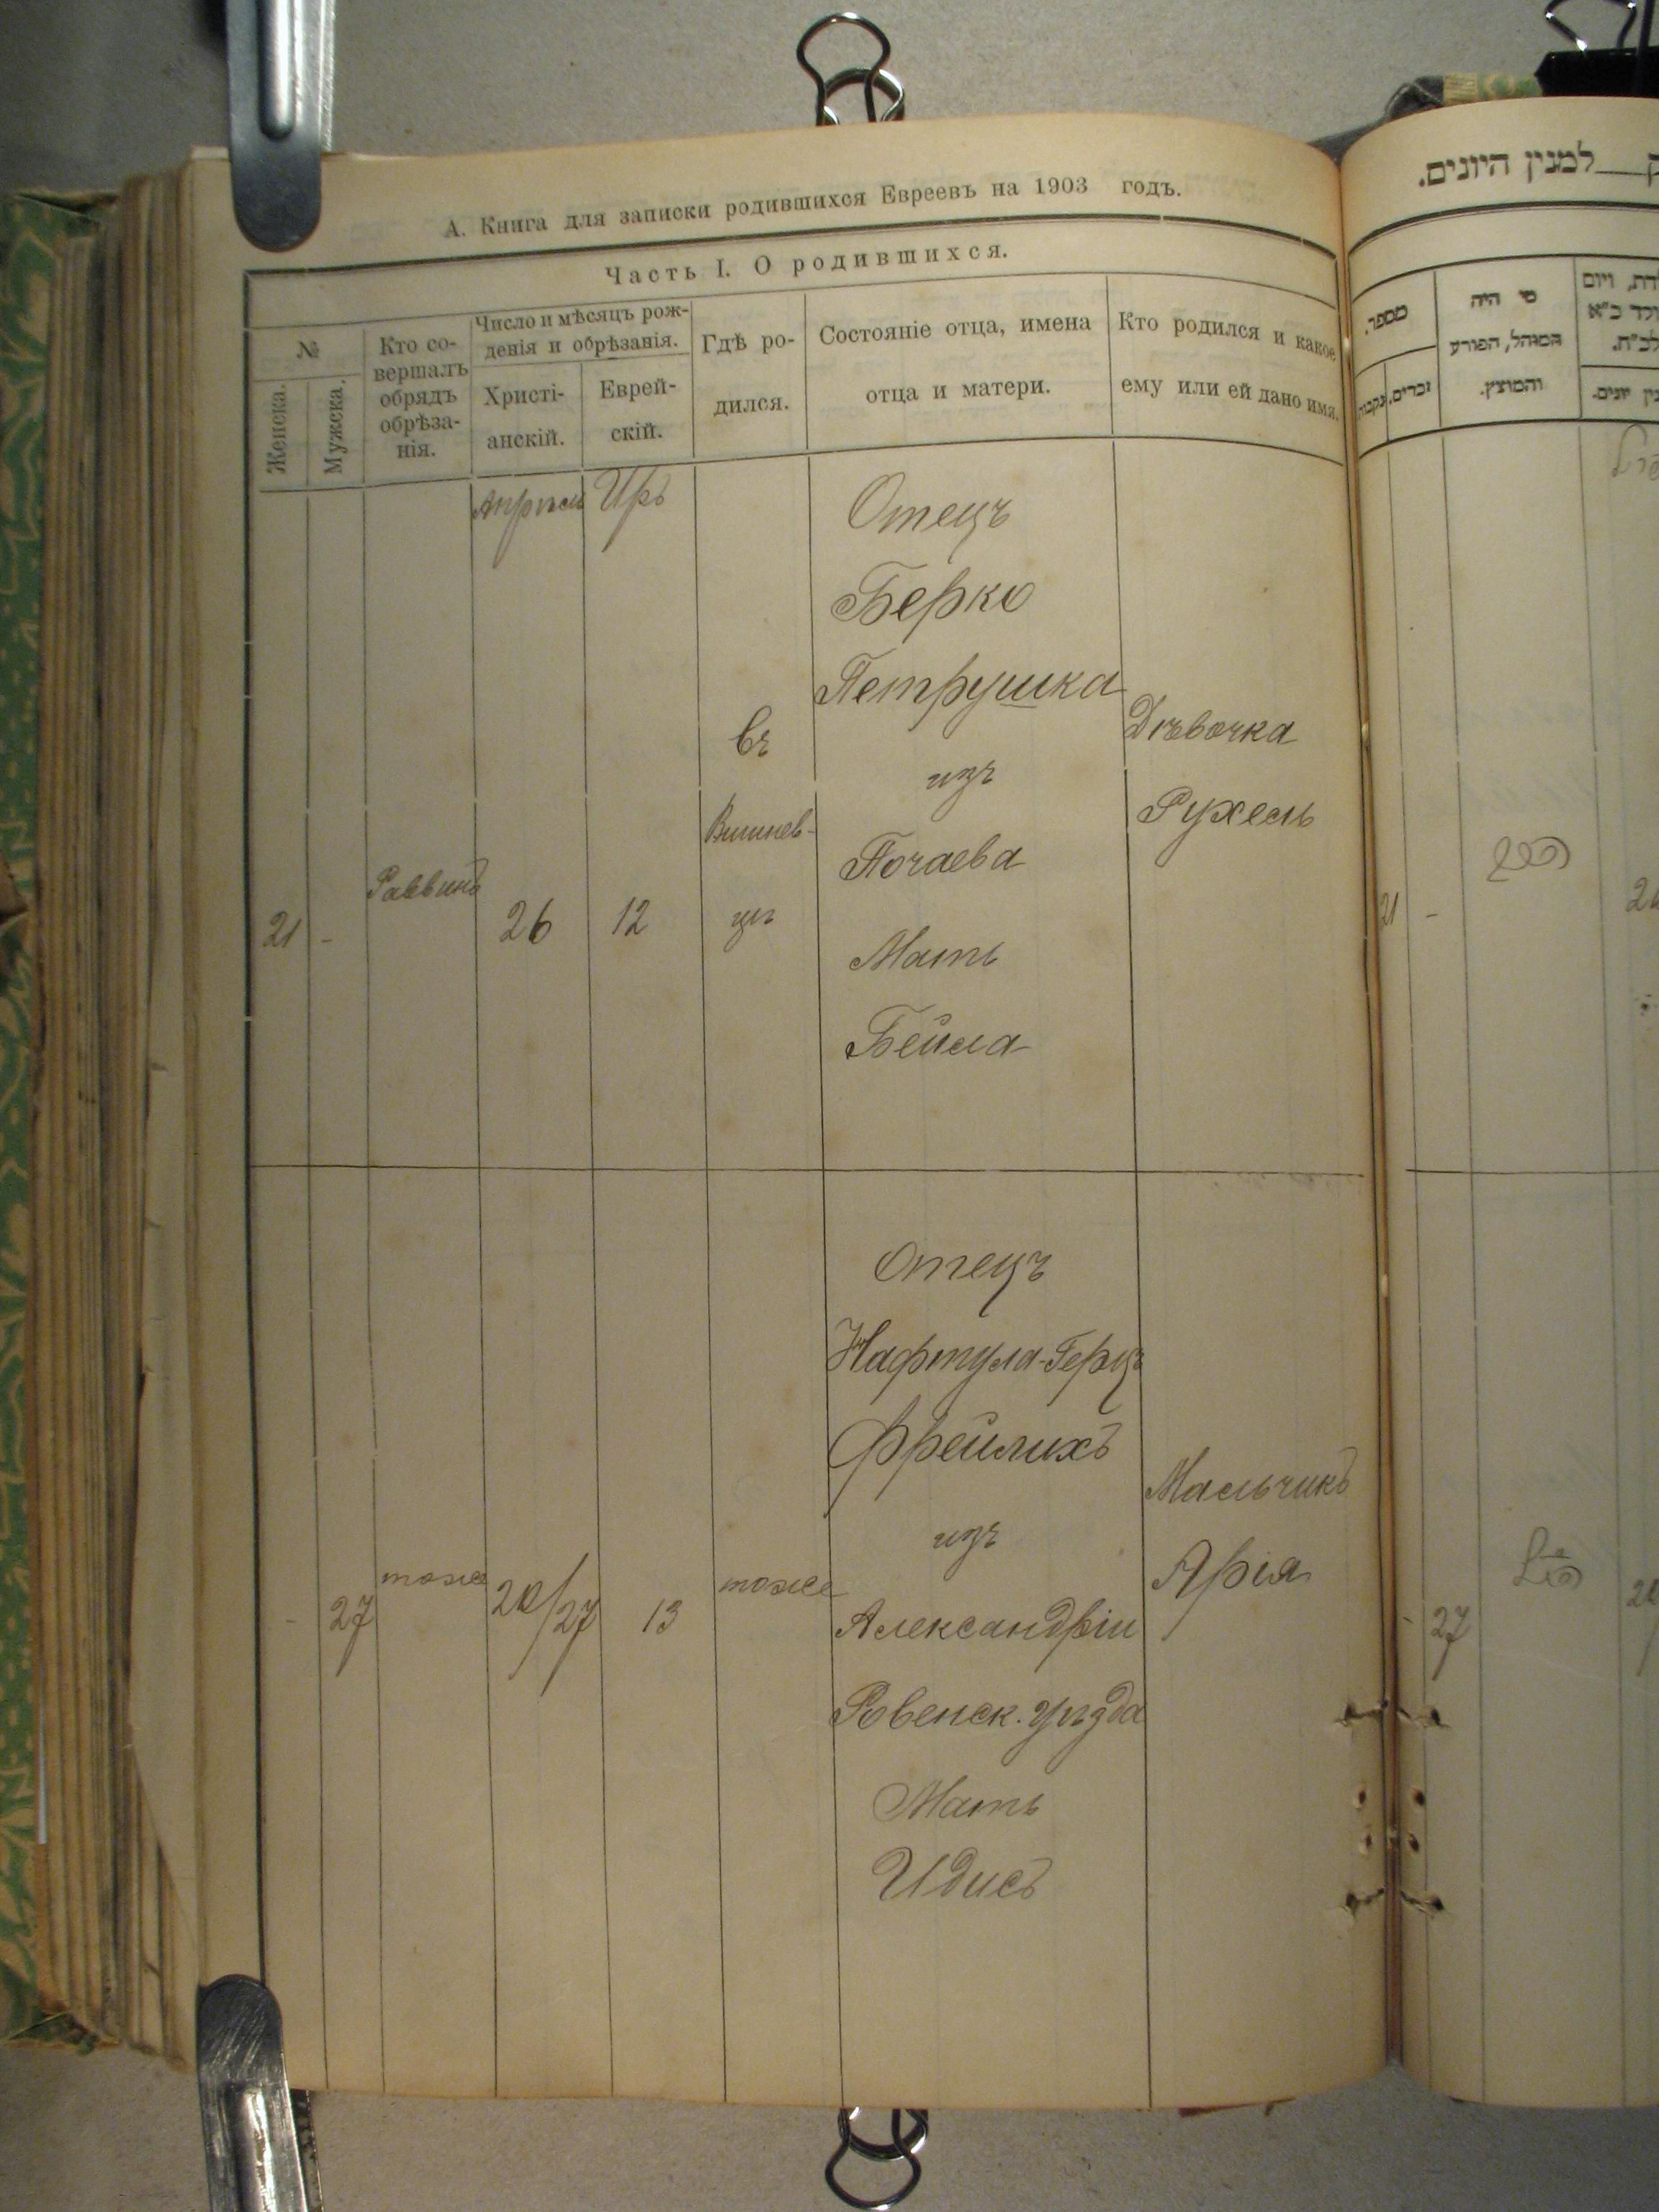 А. Книга для записки родившихся Евреевъ на 1903 годъ.
Часть I. О родившихся.
№
Женска.
Мужска.
Кто со-
вершалъ
обрядъ
обрѣза-
нія.
Число и мѣсяцъ рож-
денія и обрѣзанія.
Христі-
анскій.
Еврей-
скій.
Гдѣ ро-
дился.
Состояніе отца, имена
отца и матери.
Кто родился и какое
ему или ей дано имя.
Апрѣль Иръ
21 -
Раввинъ
26
12
въ
Вишнев-
цѣ
Отецъ
Берко
Петрушка
изъ
Почаева
Мать
Бейла
Дѣвочка
Рухель
- 27
тоже
20/27
13
тоже
Отецъ
Нафтула-Герцъ
Фрейлихъ
изъ
Александріи
Ровенск. уѣзда
Мать
Идисъ
Мальчикъ
Арія
למנין היונים.
מספר.
זכרים.
נקבות
מי היה
המוהל, הפורע
והמוצץ.
21 -
- 27